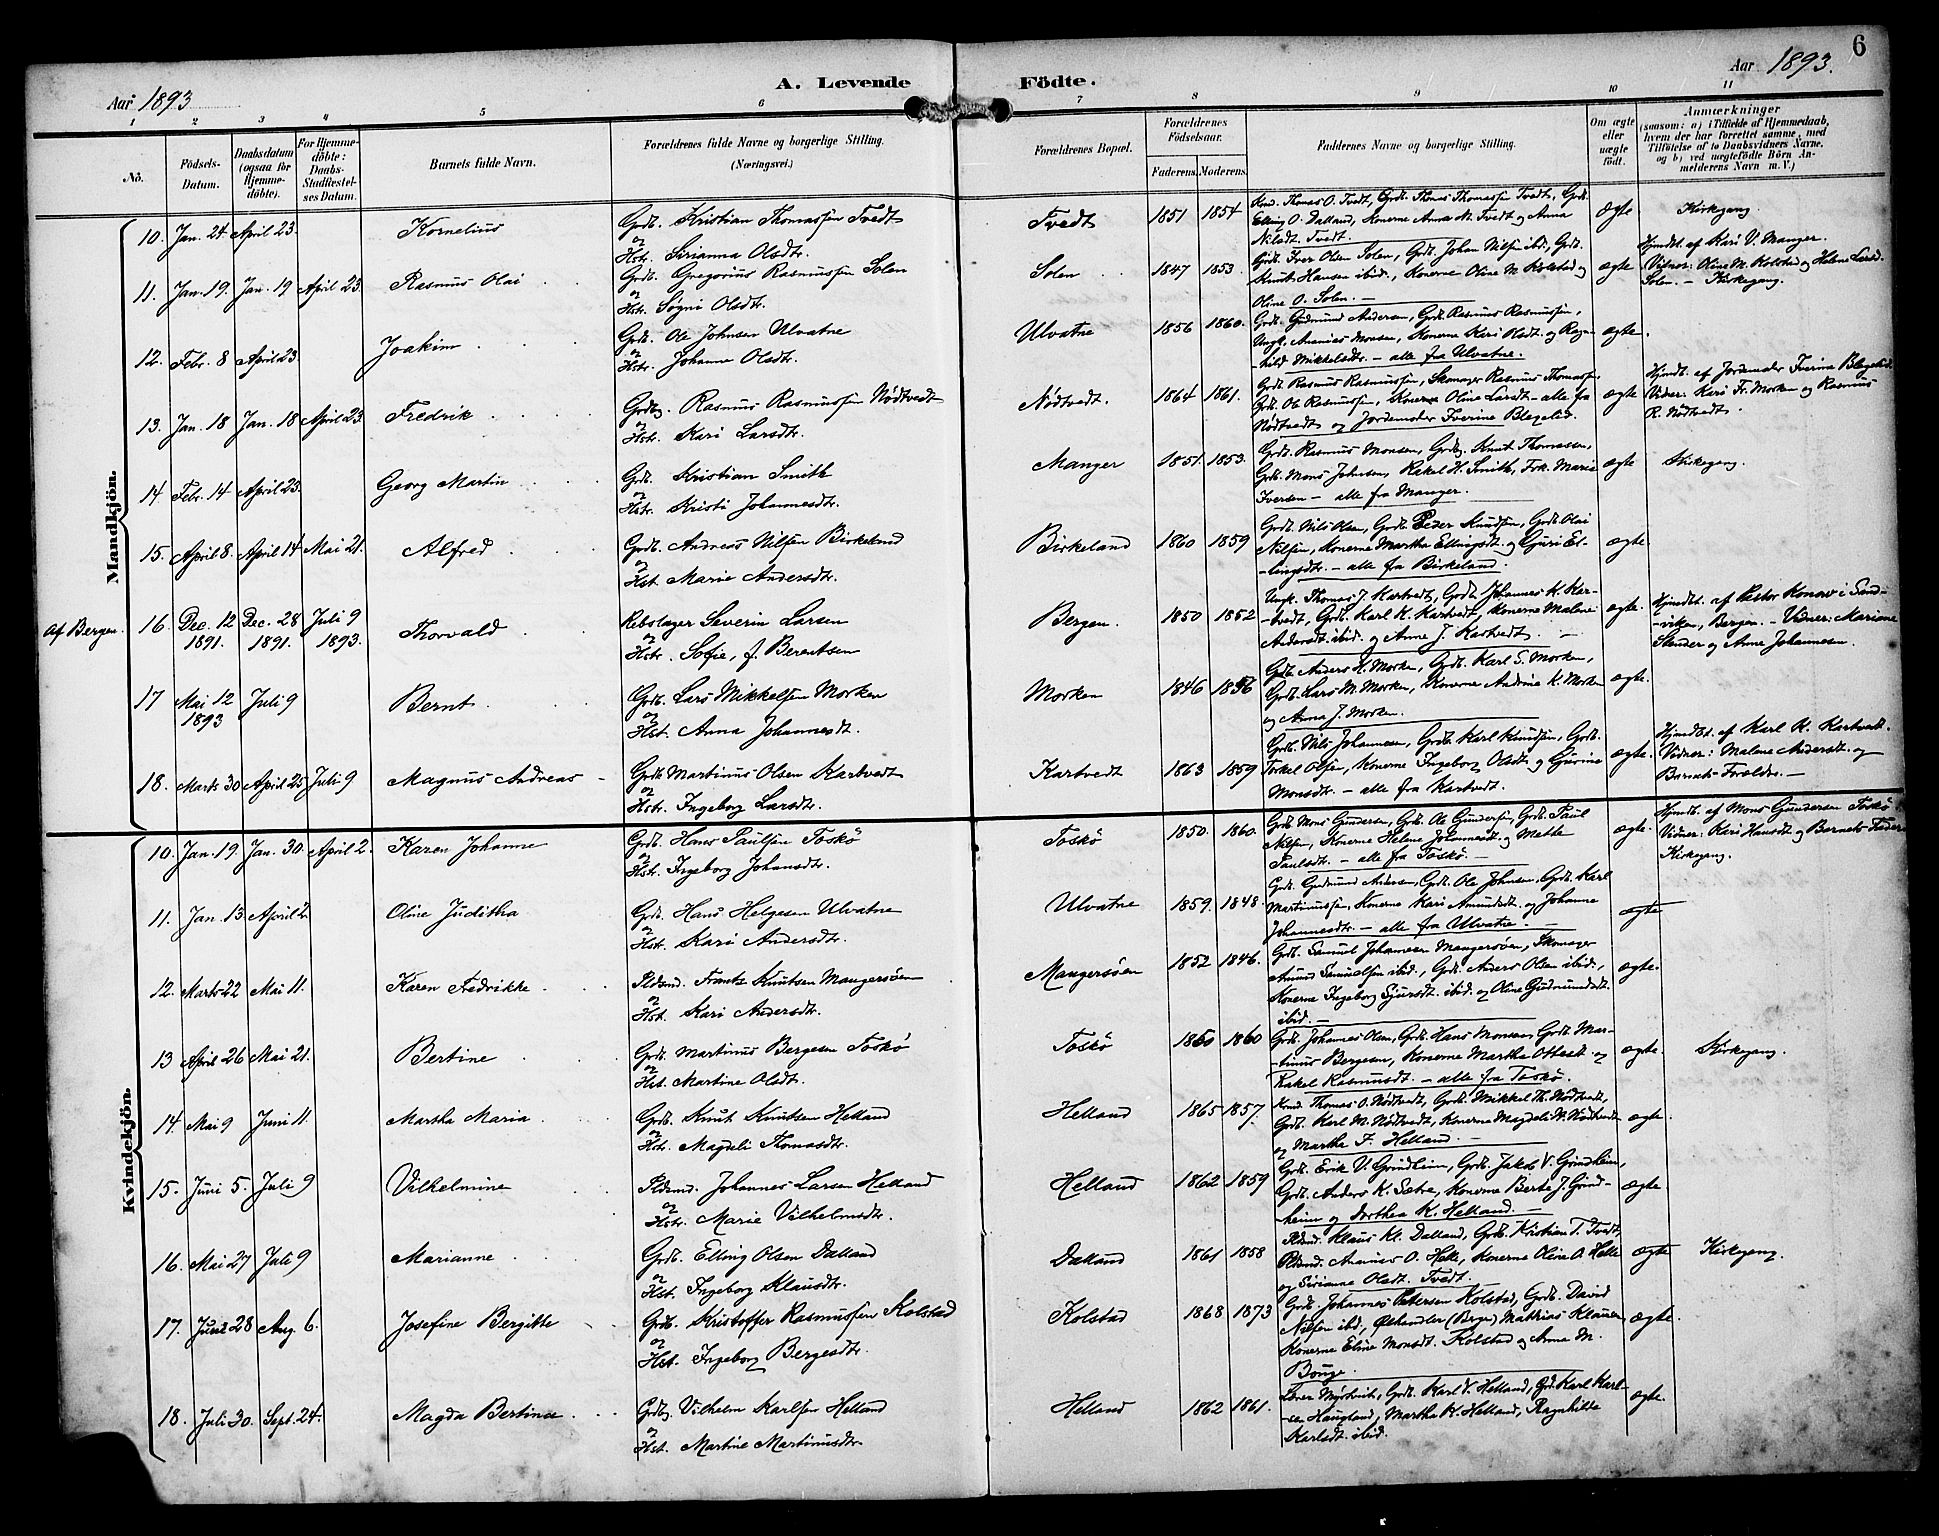 6
Aar 1893
A. Levende Födte.
Aar 1893.
1 2 3 4 5 6 7 8 9 10 11
No.
Födsels-Datum.
Daabsdatum (ogsaa for Hjemmedöbte).
For Hjemmedöbte: Daabs-Stadfæstelses Datum.
Barnets fulde Navn.
Forældrenes fulde Navne og borgerlige Stilling. (Næringsvei.)
Forældrenes Bopæl.
Forældrenes Födselsaar.
Faderens. Moderens.
Faddernes Navne og borgerlige Stilling.
Om ægte eller uægte födt.
Anmærkninger
(saasom: a) i Tilfælde af Hjemmedaab, hvem der har forrettet samme, med Tilföielse af to Daabsvidners Navne, og b) ved uægtefödte Börn Anmelderens Navn m. V.)
Mandkjön.
10. Jan. 24. April 23. Kornelius
Grdb. Kristian Thomassen Tvedt
og
Hstr. Sirianna Olsdtr.
Tvedt 1851 1854
Knd. Thomas O. Tvedt, Grdb. Thomas Thomassen Tvedt, Grdb.
Elling O. Dalland, Konerne Anna N. Tvedt og Anna
Nilsdt. Tvedt.
ægte Kirkegang.
11. Jan. 19. Jan. 19 April 23. Rasmus Olai
Grdb. Gregorius Rasmussen Solen
og
Hstr. Søgni Olsdtr.
Solen 1847 1853.
Grdb. Iver Olsen Solen, Grdb. Johan Nilsen ibd., Grdb.
Knut Hansen ibid., Konerne Oline M. Kolstad og
Oline O. Solen. —
ægte
Hjmdbt. af Kari V. Manger.
Vidner: Oline M. Kolstad og Helene Larsd.
Solen. — Kirkegang.
12. Febr. 8 April 23 Joakim
Grdb. Ole Johnsen Ulvatne
og
Hstr. Johanna Olsdtr.
Ulvatne 1856 1860.
Grdb. Gudmund Andersen, Grdb. Rasmus Rasmussen,
Ungk. Ananias Monsen, Konerne Kari Olsdt. og Ragn-
hild Mikkelsdtr. — alle fra Ulvatne.
ægte.
13. Jan. 18 Jan. 18 April 23. Fredrik
Grdbg. Rasmus Rasmussen Nödtvedt
og
Hstr. Kari Larsdtr.
Nödtvedt. 1864 1861.
Grdb. Rasmus Rasmussen, Skomager Rasmus Thomassen,
Grdb. Ole Rasmussen, Konerne Oline Larsdt — alle fra
Nödtvedt og Jordemoder Iverine
ægte
Hjmdbt. af Jordemoder Iverine
Vidner: Kari Fr. Morken og Rasmus
R. Nödtvedt.
14. Febr. 14 April 23. Georg Martin
Grdb. Kristian Smith
og
Hstr. Kristi Johannesdtr.
Manger 1851. 1853.
Grdb. Rasmus Monsen, Grdbg. Knut Thomassen,
Grdb. Mons Johnsen, Rakel H. Smith, Frk. Maria
Iversen — alle fra Manger.
ægte Kirkegang.
15. April 8. April 14 Mai 21. Alfred
Grdb. Andreas Nilsen Birkeland
og
Hst. Marie Andersdtr.
Birkeland 1860 1859
Grdb. Nils Olsen, Grdb. Peder Knudsen, Grdb. Olai
Nilsen, Konerne Martha Ellingsdt. og Guri El-
lingsdtr. — alle fra Birkeland.
ægte.
Af Bergen.
16. Dec. 12 1891. Dec. 28 1891. Juli 9 1893. Thorvald
Rebslager Severin Larsen
og
Hstr. Sofie, f. Berentsen
Bergen. 1850 1852
Ungk. Thomas J. Kartvedt, Grdb. Johannes K. Kar-
tvedt, Grdb. Karl K. Kartvedt, Konerne Malene
Andersdt. ibid. og Anne J. Kartvedt.
ægte.
Hjmdbt. af Pastor Konow i Sand-
viken, Bergen. — Vidner: Mariane
Stender og Anne Johannesen.
17 Mai 12 1893 Juli 9 Bernt.
Grdb. Lars Mikkelsen Morken
og
Hst. Anna Johannesdt.
Morken 1846 1856
Grdb. Anders H. Morken, Grdb. Karl S. Morken,
Grdb. Lars M. Morken, Konerne Andrina K. Morken
og Anna J. Morken.
ægte.
18. Marts 30 April 25 Juli 9 Magnus Andreas
Grdb. Martinus Olsen Kartvedt
og
Hstr. Ingeborg Larsdtr.
Kartvedt 1863 1859
Grdb. Nils Johannesen, Grdb. Karl Knudsen, Grdb.
Torkel Olsen, Konerne Ingeborg Olsdt. og Gurine
Monsdtr. — alle fra Kartvedt.
ægte.
Hjmdbt. af Karl K. Kartvedt.
Vidner: Malene Andersdt. og
Barnets Forældre. —
Kvindekjön.
10. Jan. 19. Jan. 30. April 2. Karen Johanne
Grdb. Hans Paulsen Toskö
og
Hstr. Ingeborg Johansdtr.
Toskö 1850. 1860.
Grdb. Mons Gundersen, Grdb. Ole Gundersen, Grdb. Paul
Nilsen, Konerne Helene Johannesdt. og Mette
Paulsdtr. — alle fra Toskö. —
ægte.
Hjmdbt. af Mons Gundersen Toskö
Vidner: Kari Hansdt. og Barnets Fader
Kirkegang.
11. Jan. 13. April 2. Oline Juditha
Grdb. Hans Helgesen Ulvatne
og
Hstr. Kari Andersdtr.
Ulvatne 1859. 1848.
Grdb. Gudmund Andersen, Grdb. Ole Johnsen, Grdb. Karl
Martinussen, Konerne Kari Amundsdt. og Johanna
Johannesdtr. — alle fra Ulvatne. —
ægte
12. Marts 22 Mai 11. Karen Fredrikke
Pldsmd. Frants Knutsen Mangersöen
og
Hst. Kari Andersdtr.
Mangersöen 1852 1846.
Grdb. Samuel Johannesen Mangersöen, Skomager
Amund Samuelsen ibid., Grdb. Anders Olsen ibid.,
Konerne Ingeborg Sjursdt. ibid. og Oline Gudmundsdt.
ibid. —
ægte.
13 April 26 Mai 21. Bertine
Grdb. Martinus Bergesen Toskö
og
Hst. Martine Olsdt.
Toskö 1860 1860
Grdb. Johannes Olsen, Grdb. Hans Monsen, Grdb. Mar-
tinus Bergesen, Konerne Martha Ottesdt. og
Rakel Rasmusdt. — alle fra Toskö.
ægte. Kirkegang.
14. Mai 9 Juni 11. Martha Maria
Grdb. Knut Knutsen Helland
og
Hstr. Magdeli Thomasdt.
Helland 1865 1857.
Knd. Thomas O. Nödtvedt, Grdb. Mikkel Th. Nödtvedt,
Grdb. Karl M. Nödtvedt, Konerne Magdeli N. Nödtvedt
og Martha F. Helland. —
ægte.
15. Juni 5. Juli 9 Vilhelmine
Pldsmd. Johannes Larsen Helland
og
Hstr. Marie Vilhelmsdtr.
Helland 1862 1859
Grdb. Erik V. Grindheim, Grdb. Jakob V. Grindheim,
Grdb. Anders K. Sætre, Konerne Berta J. Grind-
heim og Dorthea K. Helland. —
ægte.
16. Mai 27 Juli 9 Marianne
Grdb. Elling Olsen Dalland
og
Hst. Ingeborg Klausdtr.
Dalland 1861 1858
Pldsmd. Klaus Kl. Dalland, Grdb. Kristian T. Tvedt,
Pldsmd. Ananias O. Helle, Konerne Oline O. Helle
og Sirianna Olsdt. Tvedt.
ægte Kirkegang.
17. Juni 28 Aug. 6. Josefine Bergitte
Grdb. Kristoffer Rasmussen Kolstad
og
Hst. Ingeborg Bergesdtr.
Kolstad 1868 1873
Grdb. Johannes Petersen Kolstad, Grdb. David
Nilsen ibid., Ølhandler (Berge) Mathias Klausen,
Konerne Eline Monsdt. Kolstad og Anna M.
ægte.
18. Juli 30. Sept. 24. Magda Bertina
Grdbg. Vilhelm Karlsen Helland
og
Hst. Martine Martinusdtr.
Helland 1862 1861.
Lærer Myrtveit, Grdb. Karl V. Helland, Grd. Karl Karl-
sen Haugland, Martha K. Helland, Ragnhilde
Karlsdt. ibid.
ægte.